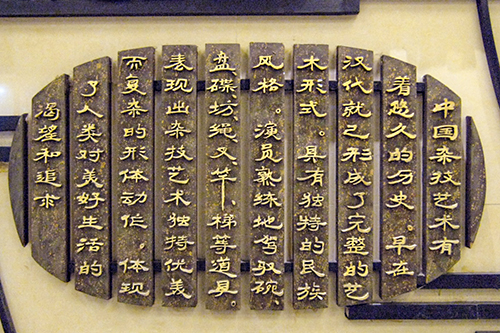 中国杂技艺术有
着悠久的历史。早在
汉代就已形成了完整的艺
术形式。具有独特的民族
风格。演员熟练地驾驭碗、
盘碟坊绳叉竿、梯等道具。
表现出杂技艺术独特优美
而复杂的形体动作。体现
了人类对美好生活的
渴望和追求